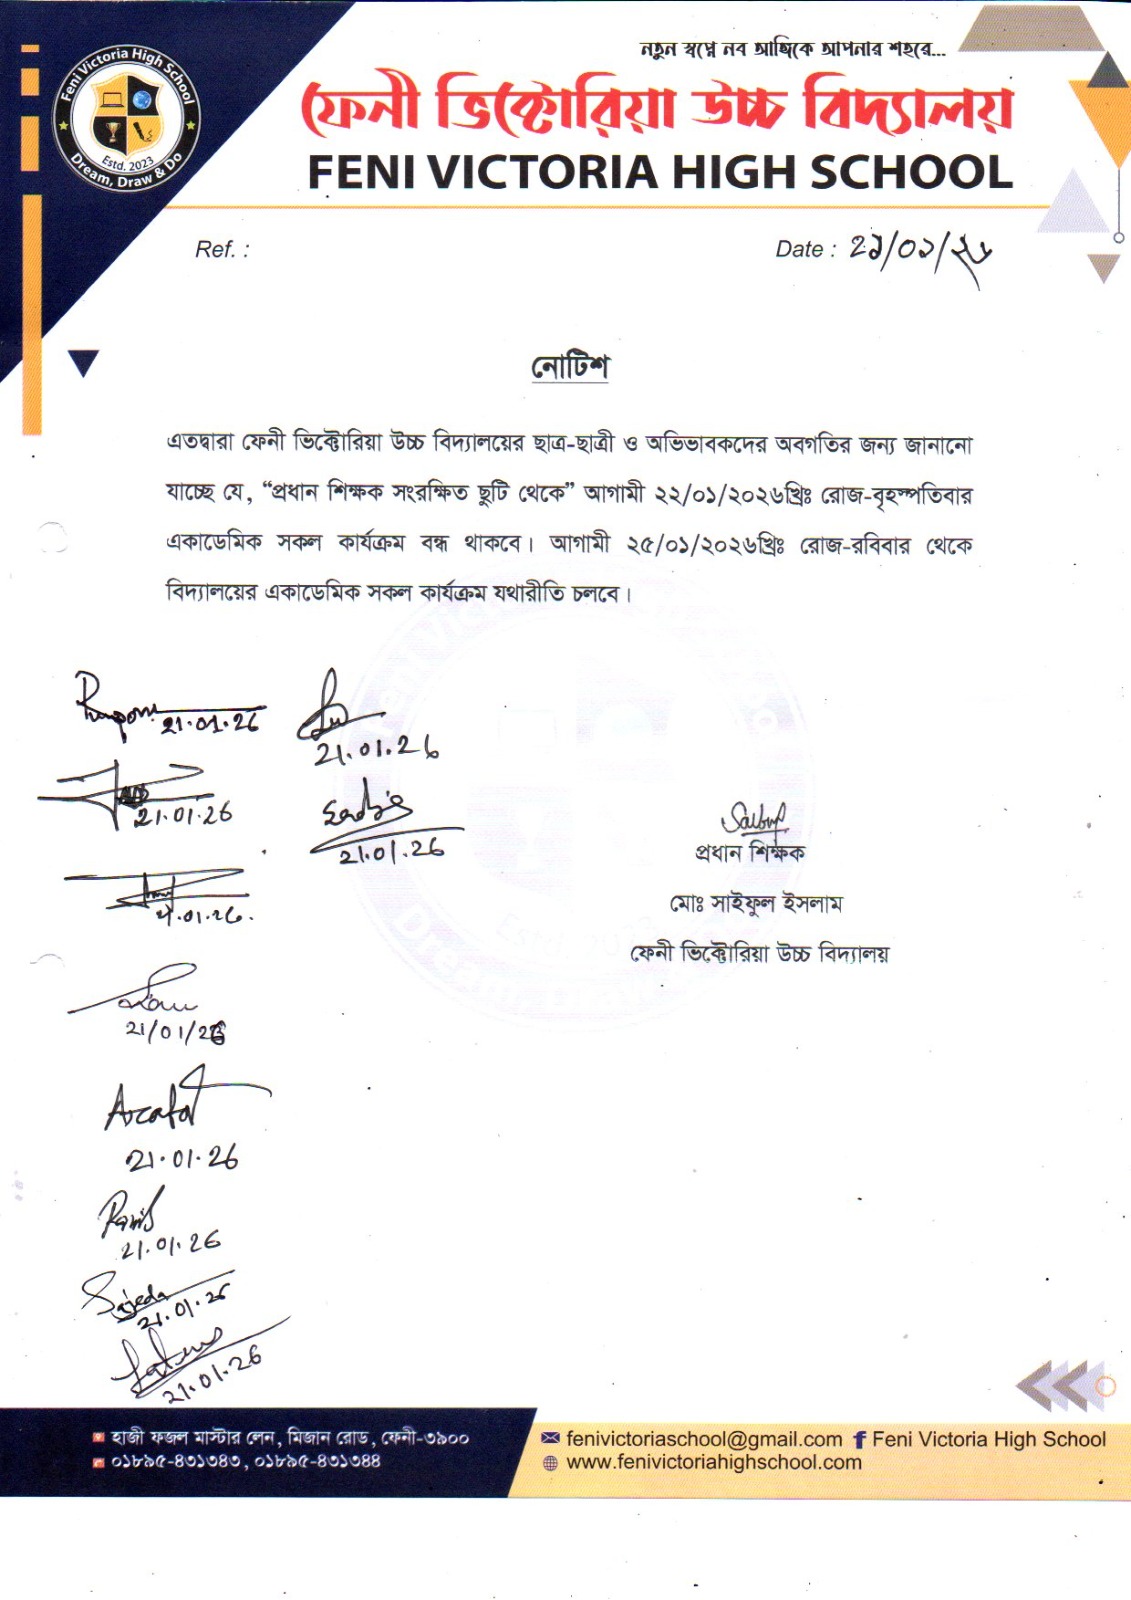 Feni Victoria High School
Estd. 2023
Dream, Draw & Do
নতুন স্বপ্নে নব আঙ্গিকে আপনার শহরে...
ফেনী ভিক্টোরিয়া উচ্চ বিদ্যালয়
FENI VICTORIA HIGH SCHOOL
Ref. :
Date : ২১/০১/২৬
নোটিশ
এতদ্বারা ফেনী ভিক্টোরিয়া উচ্চ বিদ্যালয়ের ছাত্র-ছাত্রী ও অভিভাবকদের অবগতির জন্য জানানো
যাচ্ছে যে, “প্রধান শিক্ষক সংরক্ষিত ছুটি থেকে” আগামী ২২/০১/২০২৬খ্রিঃ রোজ-বৃহস্পতিবার
একাডেমিক সকল কার্যক্রম বন্ধ থাকবে। আগামী ২৫/০১/২০২৬খ্রিঃ রোজ-রবিবার থেকে
বিদ্যালয়ের একাডেমিক সকল কার্যক্রম যথারীতি চলবে।
21.01.26
21.01.26
21.01.26
21.01.26
21.01.26
21/01/26
Arafat
21.01.26
21.01.26
Sajeda
21.01.26
21.01.26
প্রধান শিক্ষক
মোঃ সাইফুল ইসলাম
ফেনী ভিক্টোরিয়া উচ্চ বিদ্যালয়
হাজী ফজল মাস্টার লেন, মিজান রোড, ফেনী-৩৯০০
০১৮৯৫-৪৩১৩৪৩, ০১৮৯৫-৪৩১৩৪৪
fenivictoriaschool@gmail.com Feni Victoria High School
www.fenivictoriahighschool.com